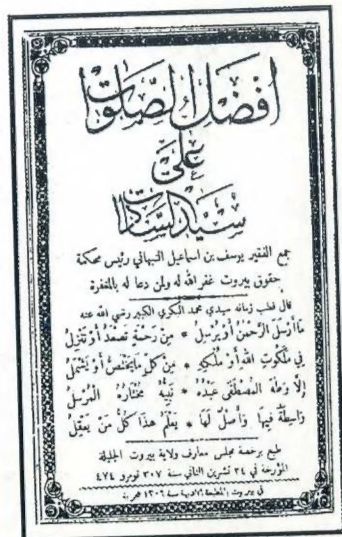 افضل الصلوات
على
سيد السادات
جمع الفقير يوسف بن اسماعيل النبهاني رئيس محكمة
حقوق بيروت غفر الله له ولمن دعا له بالمغفرة
قال قطب زمانه سيدي محمد البكري الكبير رضي الله عنه
مَا أَرْسَلَ الرَّحْمٰنُ أَوْ يُرْسِلُ * مِنْ رَحْمَةٍ تَصْعَدُ أَوْ تَنْزِلُ
فِي مَلَكُوتِ اللهِ أَوْ مُلْكِهِ * مِنْ كُلِّ مَا يَخْتَصُّ أَوْ يَشْمَلُ
إِلَّا وَطٰهَ الْمُصْطَفَى عَبْدُهُ * نَبِيُّهُ مُخْتَارُهُ الْمُرْسَلُ
وَاسِطَةٌ فِيهَا وَأَصْلٌ لَهَا * يَعْلَمُ هٰذَا كُلُّ مَنْ يَعْقِلُ
طبع برخصة مجلس معارف ولاية بيروت الجليلة
المؤرخة في ٢٤ تشرين الثاني سنة ٣٠٧ نومرو ٤٧٤
في بيروت بالمطبعة الادبية سنة ١٣٠٩ هجرية